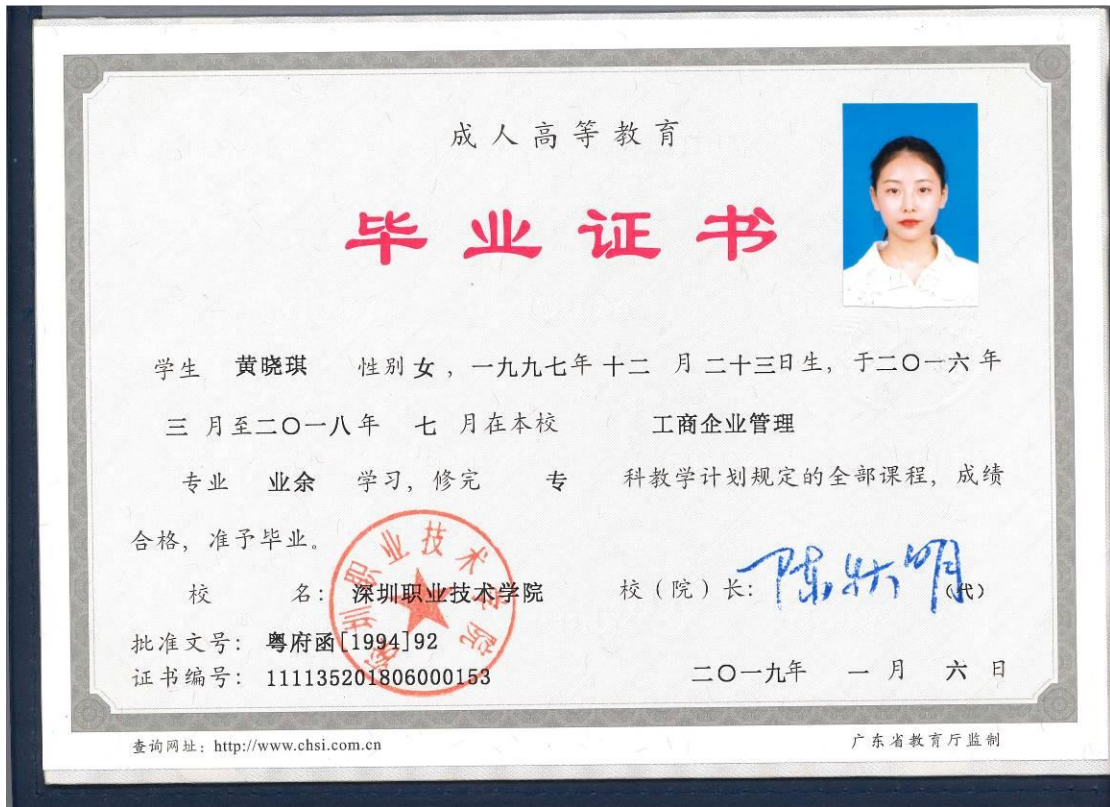 成人高等教育
毕业证书
学生 黄晓琪 性别女，一九九七年十二月二十三日生，于二〇一六年
三月至二〇一八年 七 月在本校 工商企业管理
专业 业余 学习，修完 专 科教学计划规定的全部课程，成绩
合格，准予毕业。
深圳职业技术学院
校 名：深圳职业技术学院 校（院）长：（代）
批准文号：粤府函[1994]92
证书编号：111135201806000153 二〇一九年 一 月 六 日
查询网址：http://www.chsi.com.cn 广东省教育厅监制